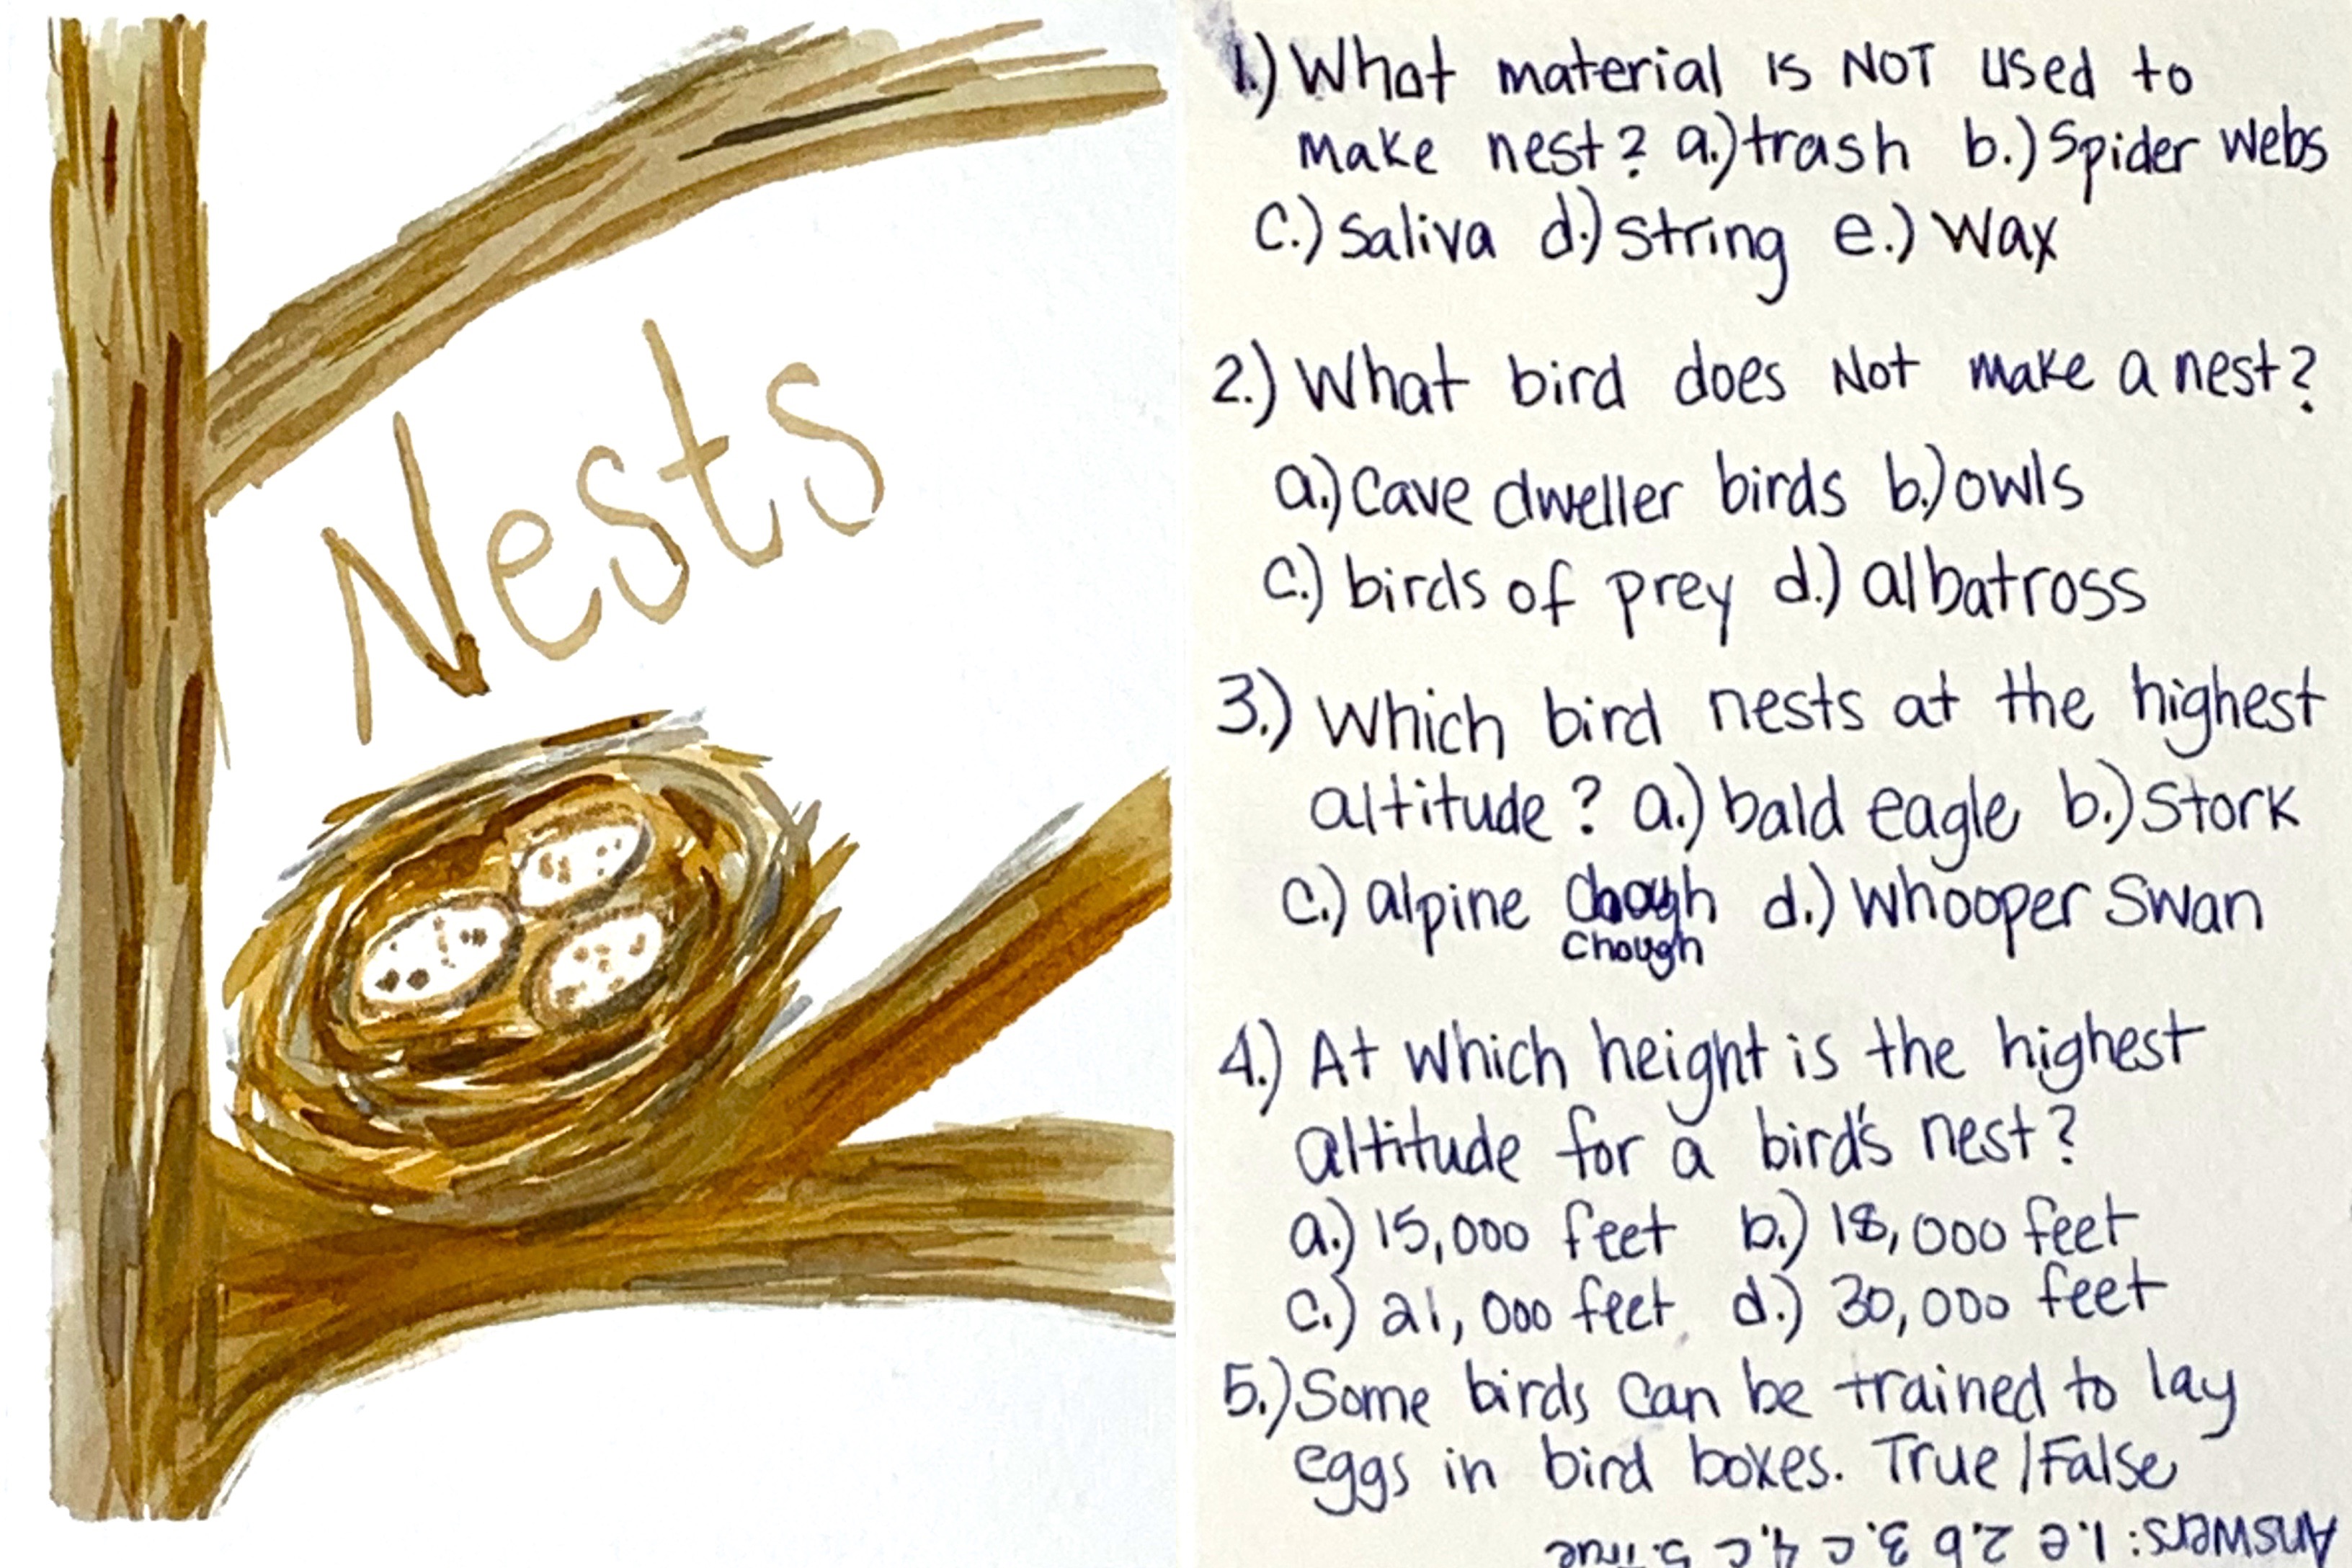 Nests
1.) What material is NOT used to
make nest? a.) trash b.) Spider webs
c.) Saliva d.) String e.) Wax
2.) What bird does Not make a nest?
a.) Cave dweller birds b.) owls
c.) birds of prey d.) albatross
3.) Which bird nests at the highest
altitude? a.) bald eagle b.) Stork
c.) alpine chough d.) Whooper Swan
Chough
4.) At which height is the highest
altitude for a bird's nest?
a.) 15,000 feet b.) 18,000 feet
c.) 21,000 feet d.) 30,000 feet
5.) Some birds can be trained to lay
eggs in bird boxes. True/False
Answers: 1.e 2.b 3.c 4.c 5.True